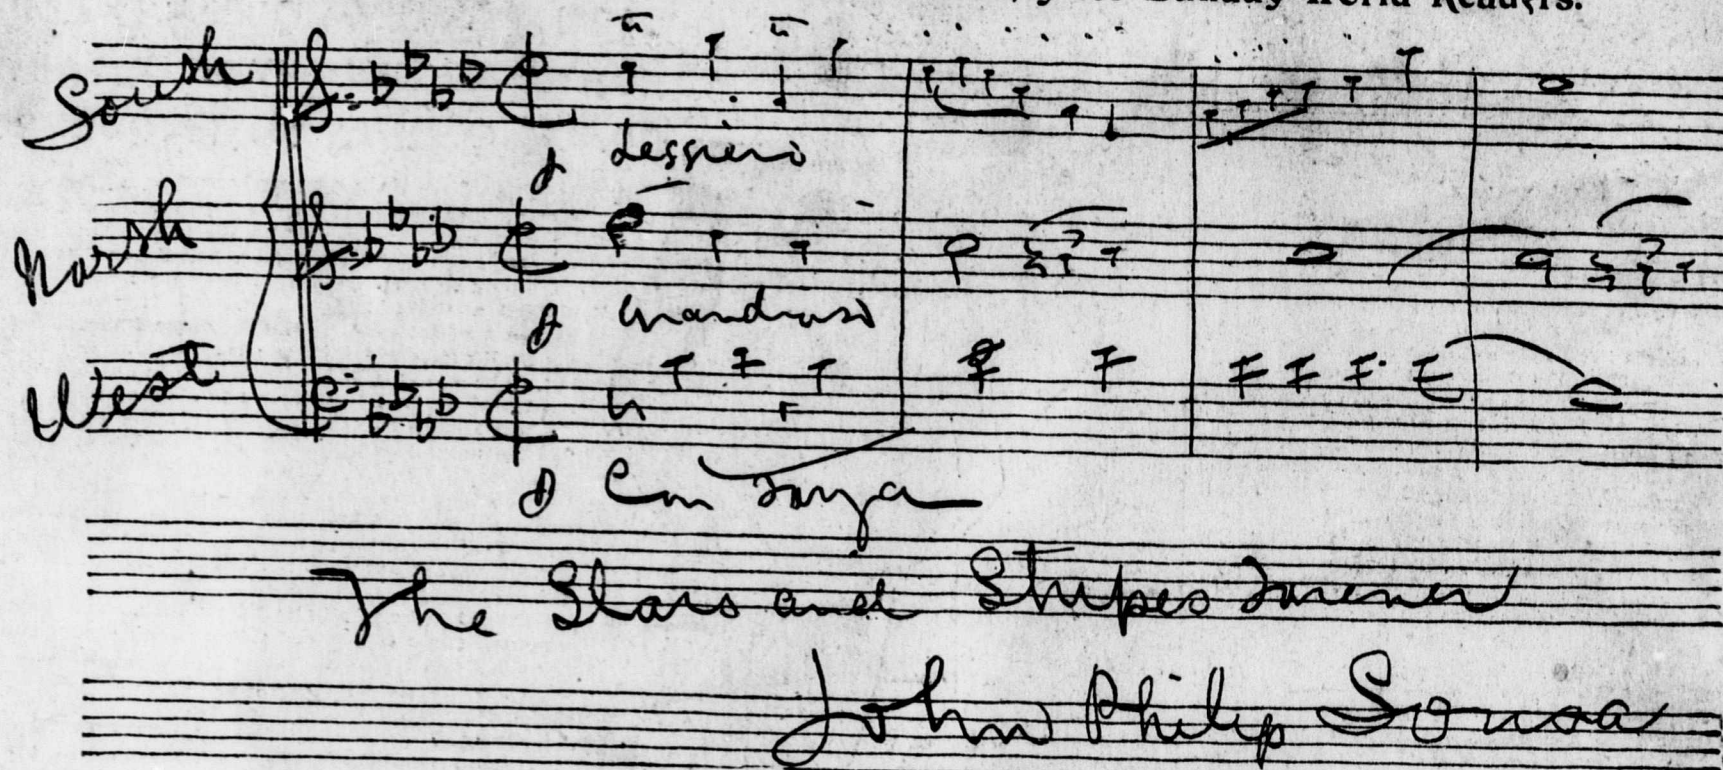 Sunday World Readers.
South
leggiero
North
Grandioso
West
Con Forza
The Stars and Stripes Forever
John Philip Sousa